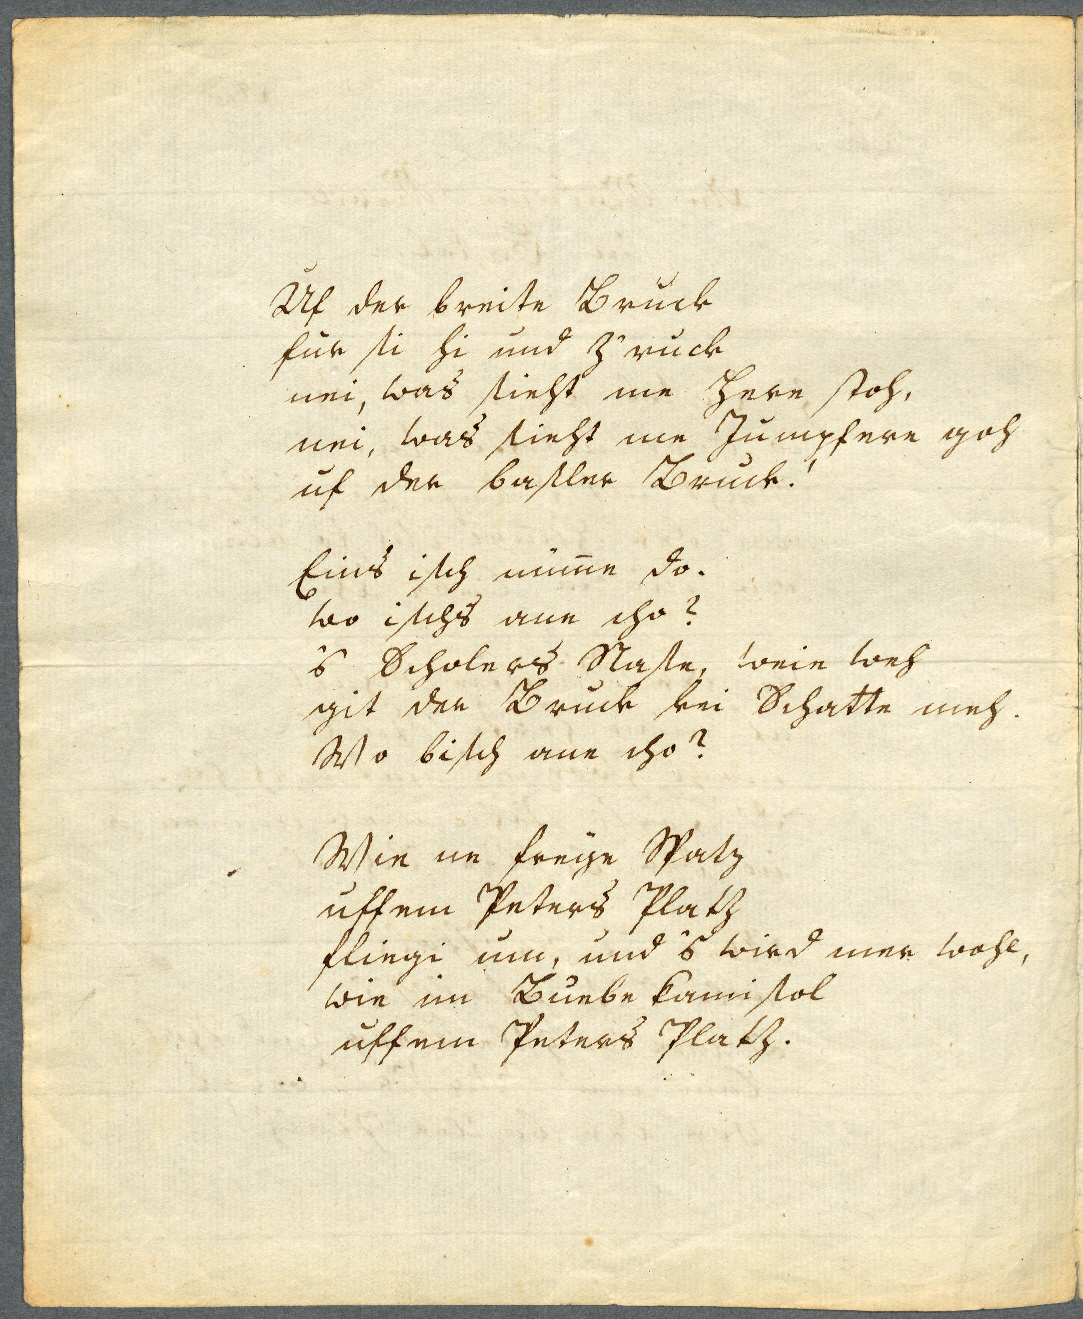 Uf der breite Bruck
für si hi und z'ruck
nei, was sieht me Here stoh,
nei, was sieht me Jumpfere goh
uf der basler Bruck!
Eins isch nüm̅e do.
wo ischs ane cho?
's Scholers Nase, weie weh
git der Bruck kei Schatte meh.
Wo bisch ane cho?
Wie ne freye Spatz
uffem Peters Platz
fliegi um, und 's wird mer wohl,
wie im Buebe Kamisol
uffem Peters Platz.